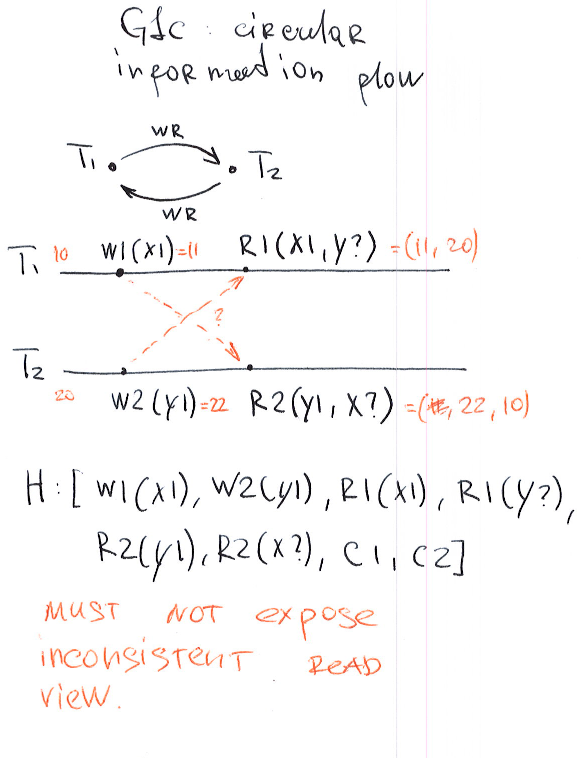 G1c : circular
information flow
WR
T1 T2
WR
T1 10 W1(X1)=11 R1(X1, Y?) =(11, 20)
?
T2
20 W2(Y1)=22 R2(Y1, X?) =(22, 10)
H:[ W1(X1), W2(Y1), R1(X1), R1(Y?),
R2(Y1), R2(X?), C1, C2]
MUST NOT expose
inconsistent READ
view.